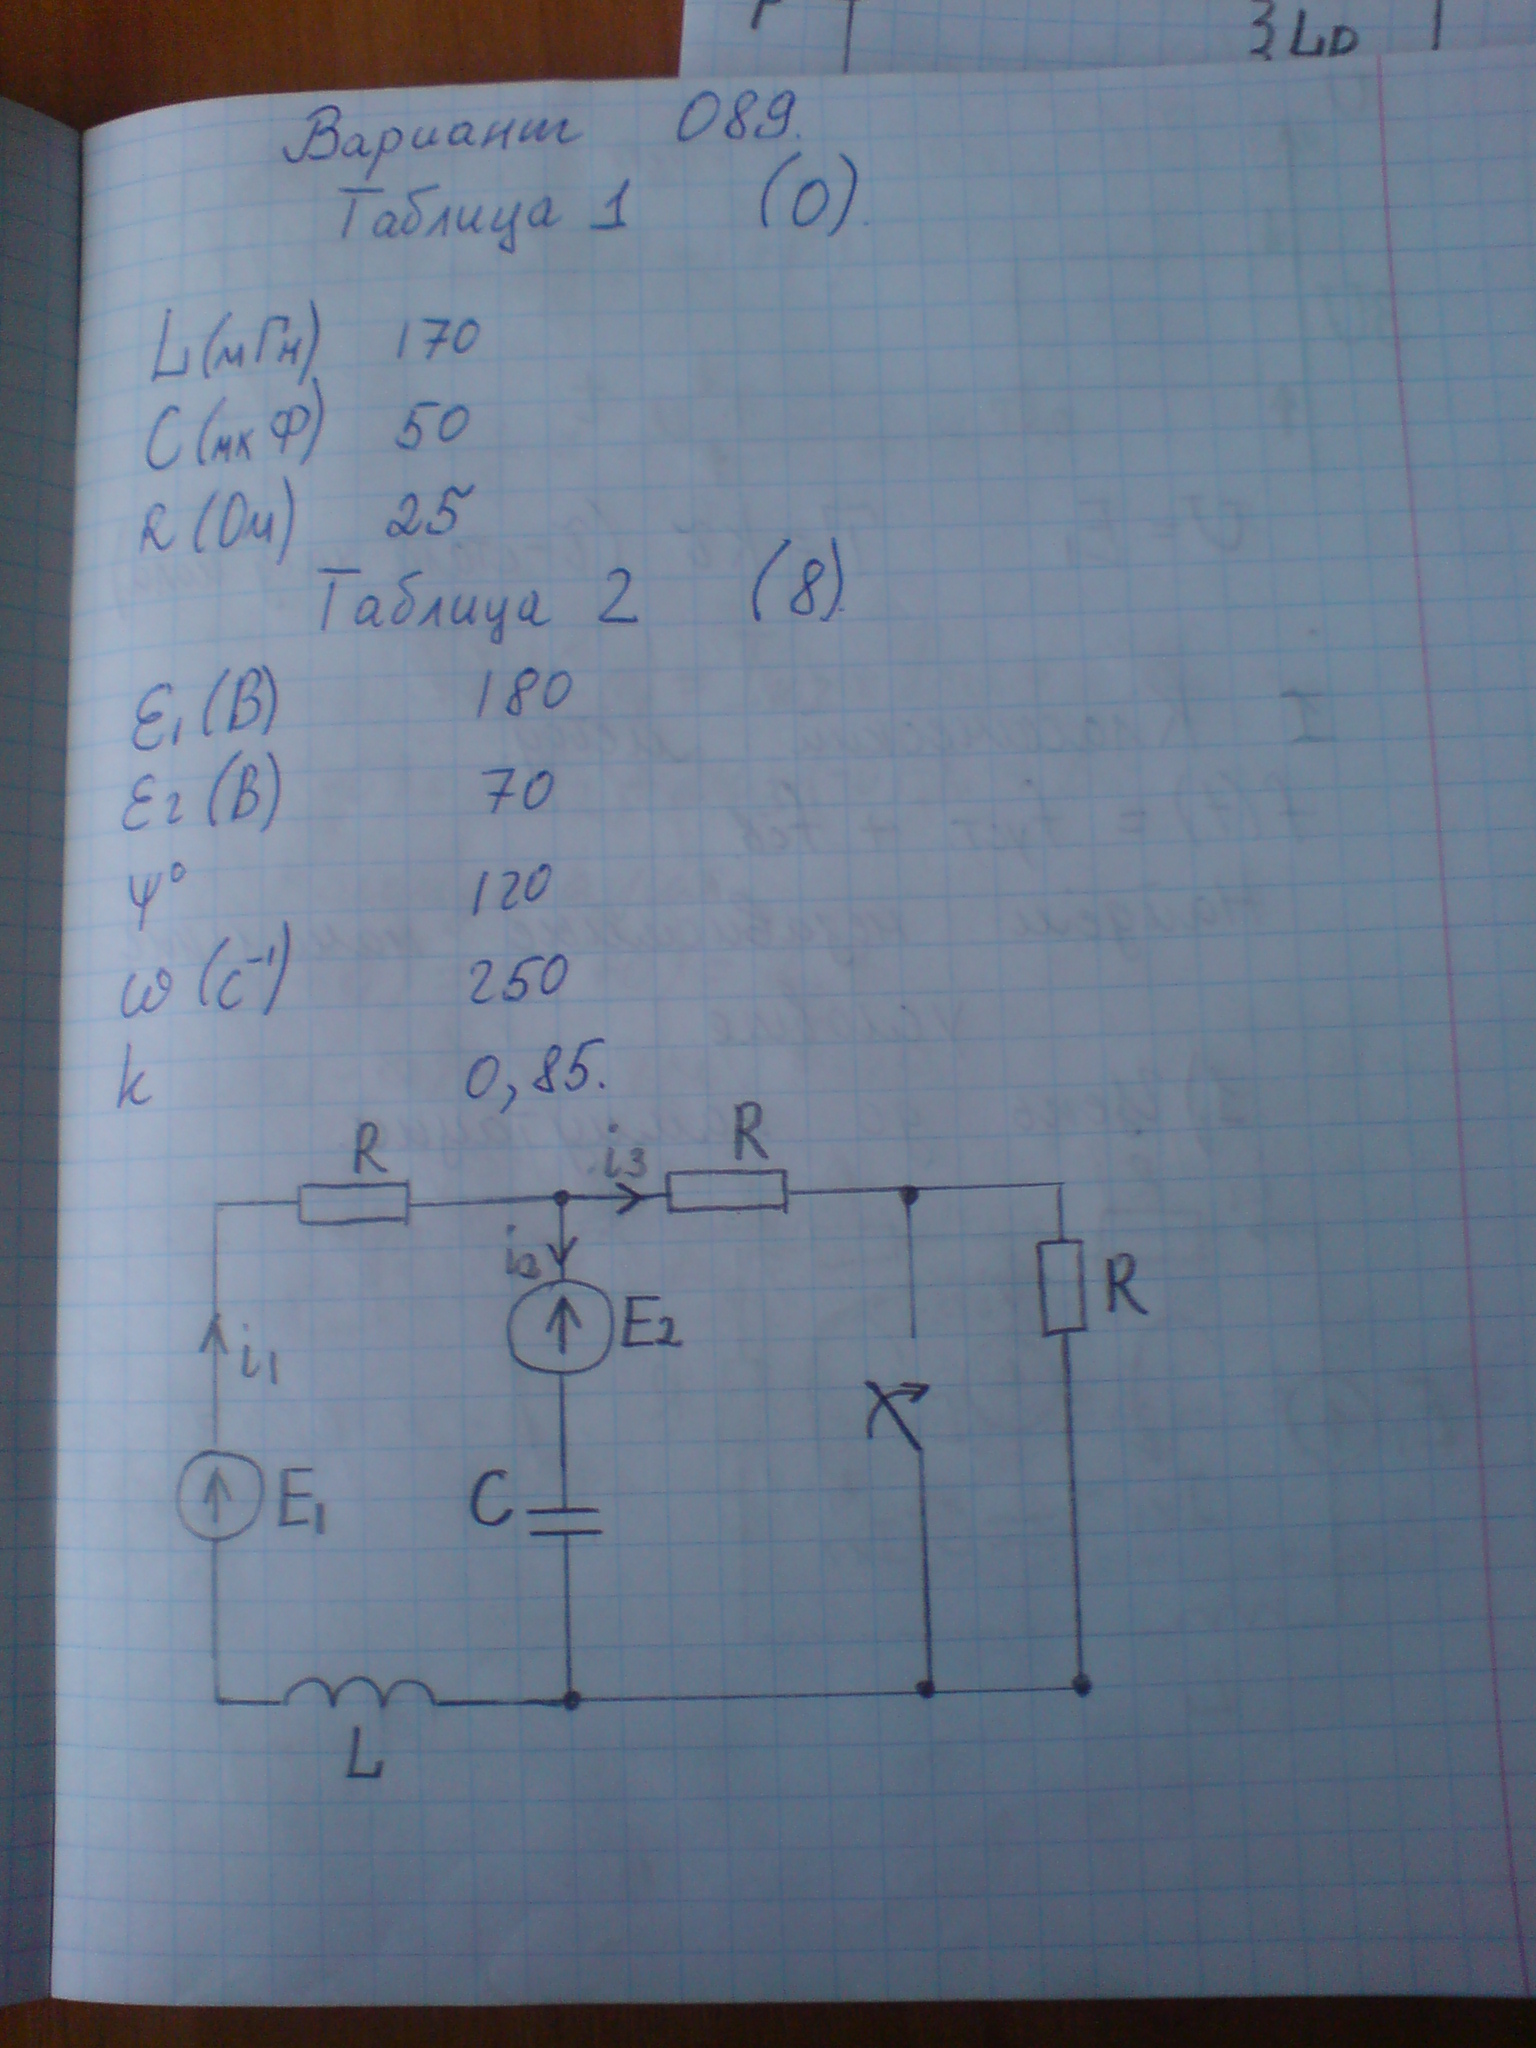 3 LD
Вариант 089.
Таблица 1 (0).
L (мГн) 170
C (мкФ) 50
R (Ом) 25
Таблица 2 (8).
E1 (В) 180
E2 (В) 70
ψ° 120
ω (с⁻¹) 250
k 0,85.
R i3 R
i2
E2 R
i1
C E1
L